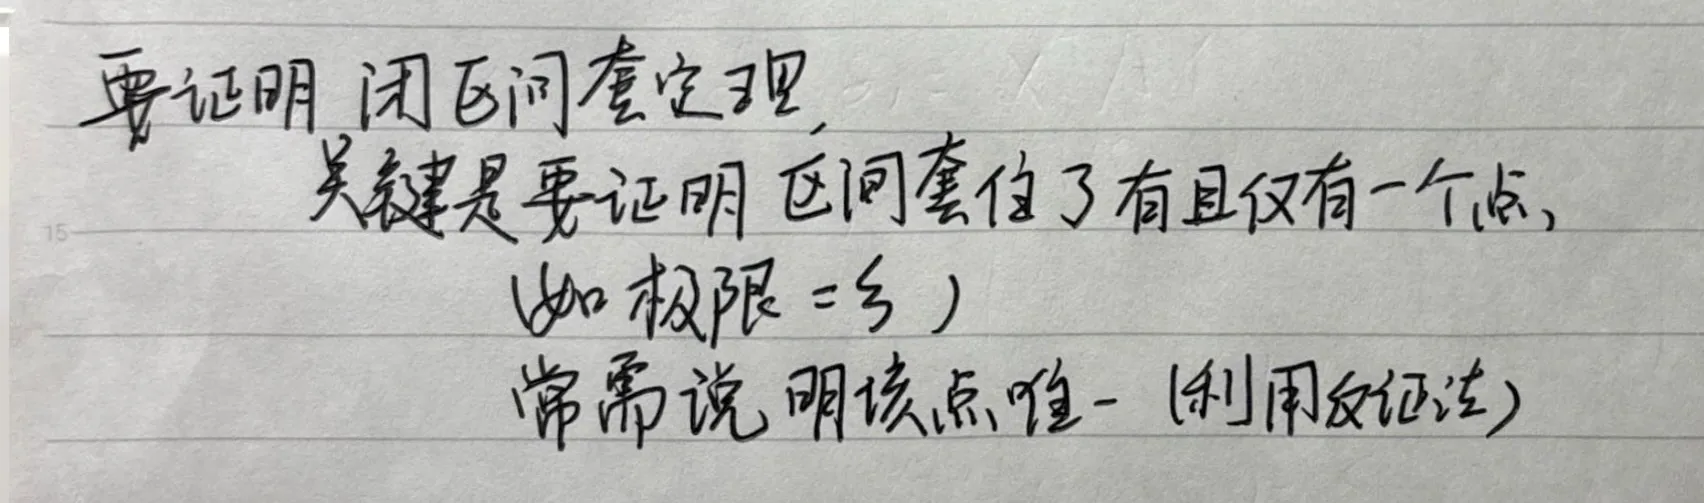 要证明 闭区间套定理,
关键是要证明 区间套住了有且仅有一个点,
(如极限=ξ)
常需说明该点唯一 (利用反证法)
15